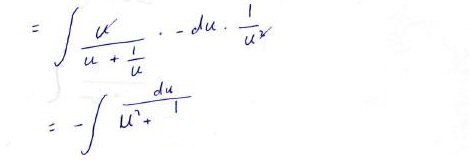 = ∫ u / (u + 1/u) · -du · 1/u²
= -∫ du / (u² + 1)